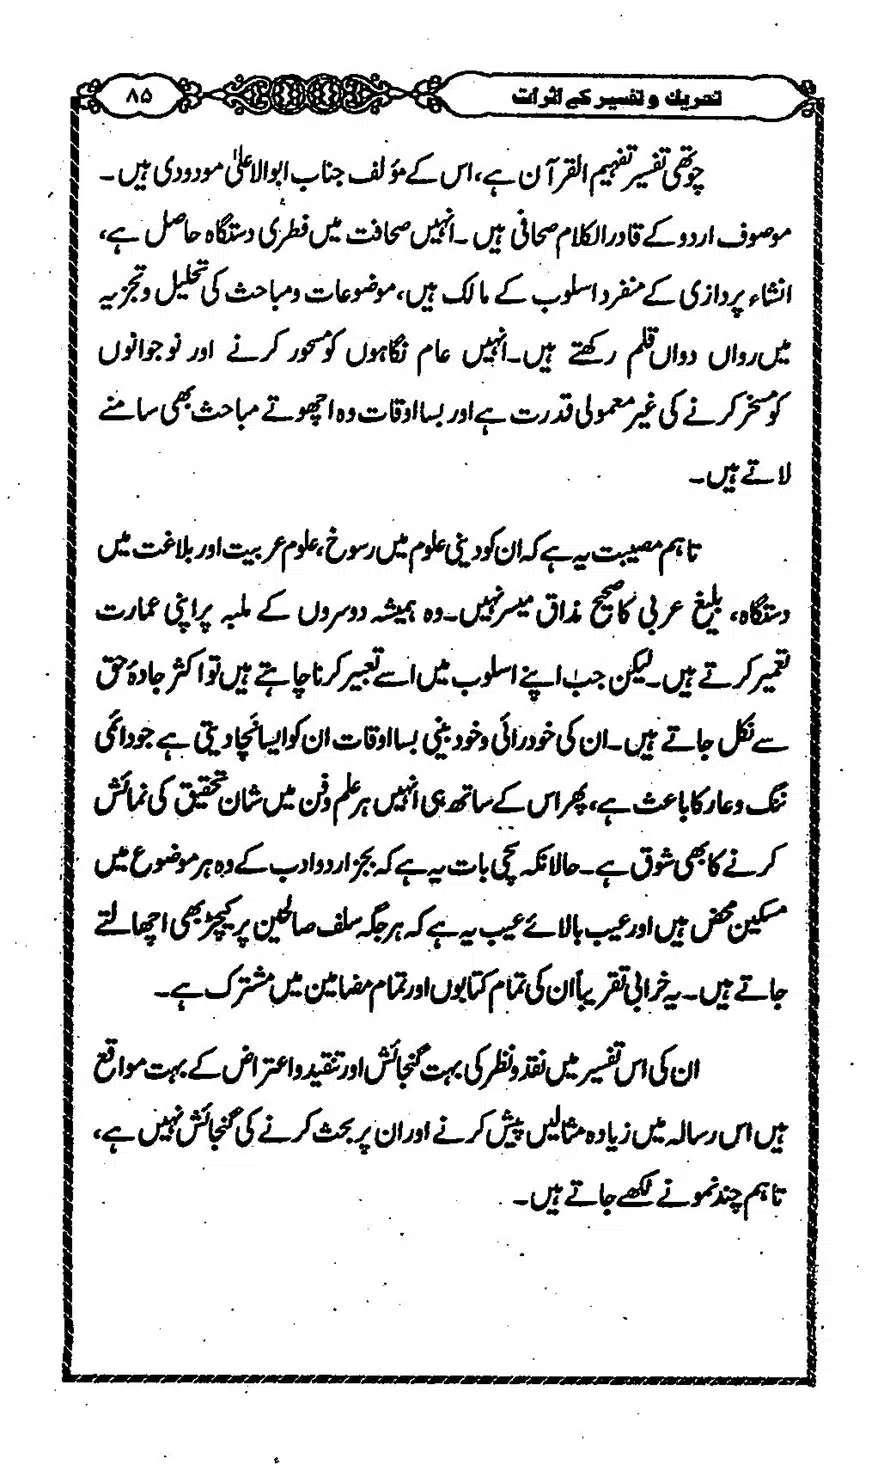 تحریک و تفسیر کے اثرات ۸۵
چوتھی تفسیر تفہیم القرآن ہے، اس کے مؤلف جناب ابوالاعلیٰ مودودی ہیں۔
موصوف اردو کے قادر الکلام صحافی ہیں۔ انہیں صحافت میں فطری دستگاہ حاصل ہے،
انشاء پردازی کے منفرد اسلوب کے مالک ہیں، موضوعات و مباحث کی تحلیل و تجزیہ
میں رواں دواں قلم رکھتے ہیں۔ انہیں عام نگاہوں کو مسحور کرنے اور نوجوانوں
کو مسخر کرنے کی غیر معمولی قدرت ہے اور بسا اوقات وہ اچھوتے مباحث بھی سامنے
لاتے ہیں۔
تاہم مصیبت یہ ہے کہ ان کو دینی علوم میں رسوخ، علوم عربیت اور بلاغت میں
دستگاہ، بلیغ عربی کا صحیح مذاق میسر نہیں۔ وہ ہمیشہ دوسروں کے ملبہ پر اپنی عمارت
تعمیر کرتے ہیں۔ لیکن جب اپنے اسلوب میں اسے تعبیر کرنا چاہتے ہیں تو اکثر جادۂ حق
سے نکل جاتے ہیں۔ ان کی خودرائی و خودبینی بسا اوقات ان کو ایسا نچا دیتی ہے جو دائمی
ننگ و عار کا باعث ہے، پھر اس کے ساتھ ہی انہیں ہر علم و فن میں شان تحقیق کی نمائش
کرنے کا بھی شوق ہے۔ حالانکہ سچی بات یہ ہے کہ بجز اردو ادب کے وہ ہر موضوع میں
مسکین محض ہیں اور عیب بالائے عیب یہ ہے کہ ہر جگہ سلف صالحین پر کیچڑ بھی اچھالتے
جاتے ہیں۔ یہ خرابی تقریباً ان کی تمام کتابوں اور تمام مضامین میں مشترک ہے۔
ان کی اس تفسیر میں نقد و نظر کی بہت گنجائش اور تنقید و اعتراض کے بہت مواقع
ہیں اس رسالہ میں زیادہ مثالیں پیش کرنے اور ان پر بحث کرنے کی گنجائش نہیں ہے،
تاہم چند نمونے لکھے جاتے ہیں۔